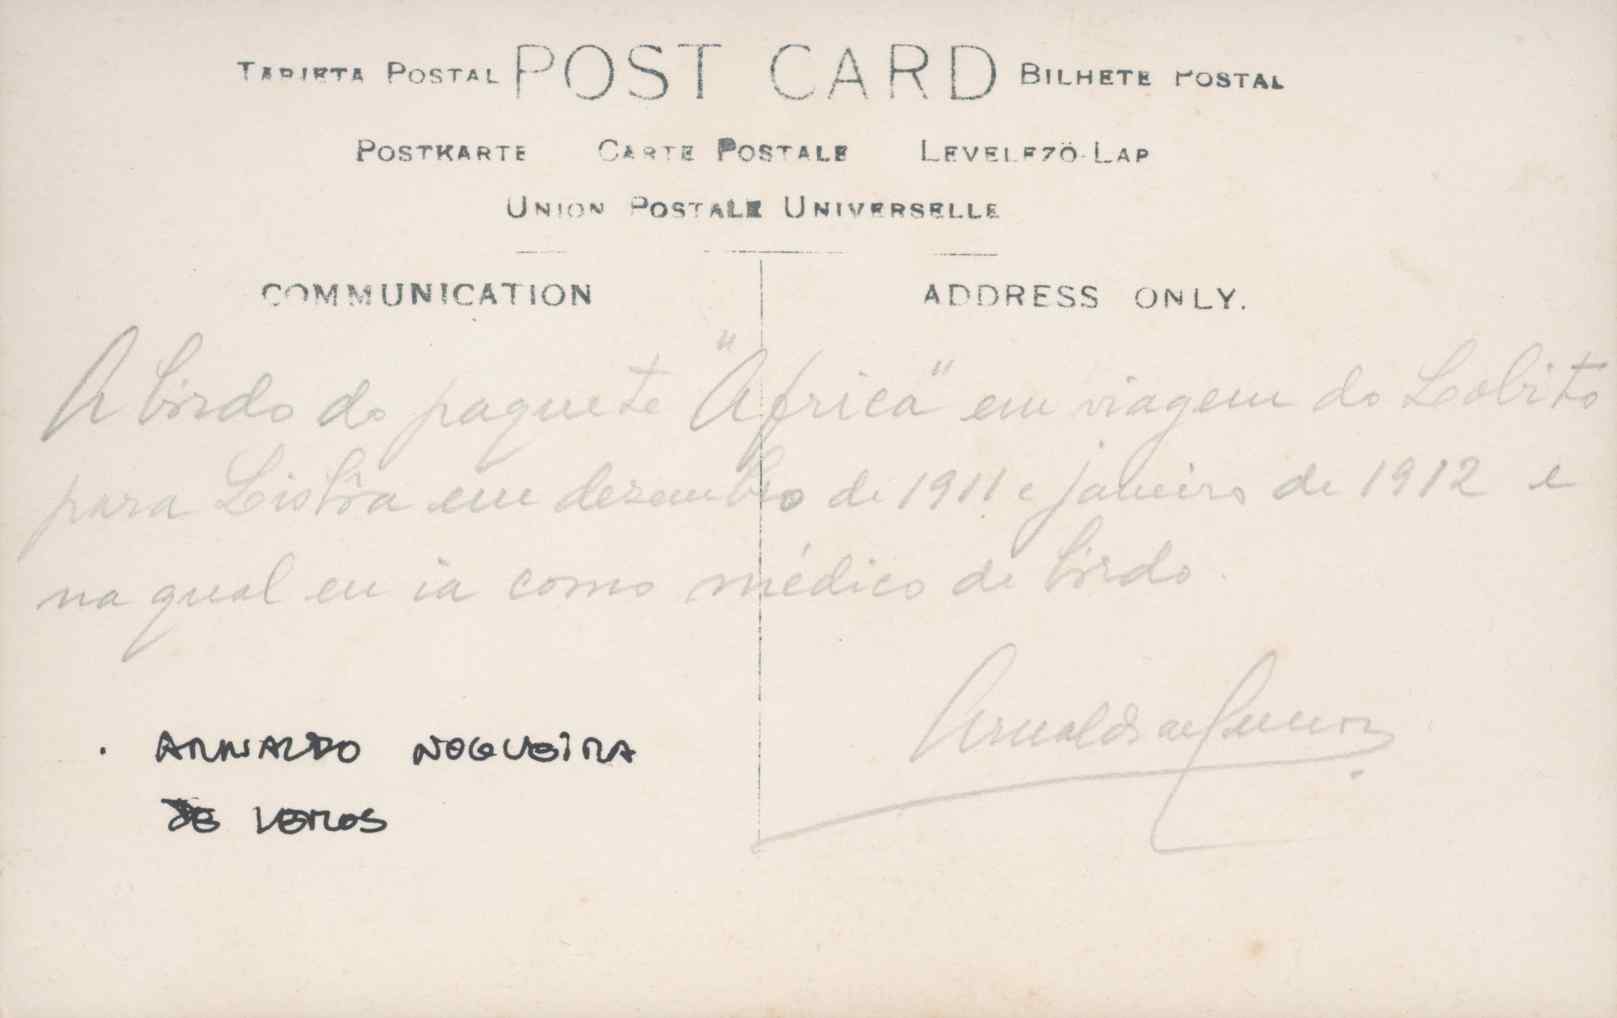 TARJETA POSTAL POST CARD BILHETE POSTAL
POSTKARTE CARTE POSTALE LEVELEZÖ-LAP
UNION POSTALE UNIVERSELLE
COMMUNICATION ADDRESS ONLY.
A bordo do paquete "Africa" em viagem do Lobito
para Lisbôa em dezembro de 1911 e janeiro de 1912 e
na qual eu ia como médico de bordo.
Arnaldo de Lemos
ARNALDO NOGUEIRA
DE LEMOS